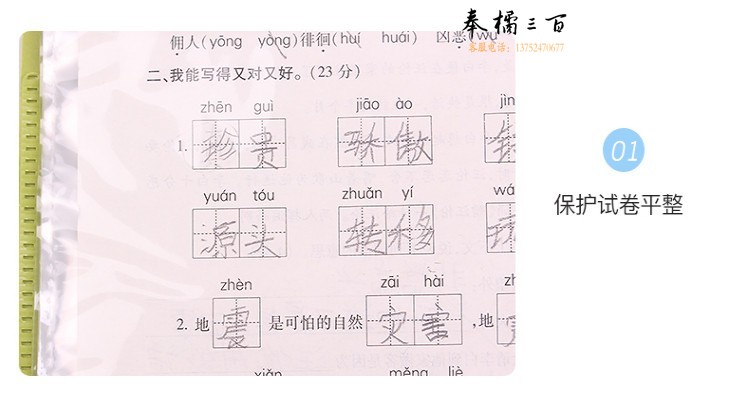 奉橘三百
客服电话：13752470677
佣人(yōng yòng)徘徊(huí huái) 凶恶(wù
二、我能写得又对又好。(23 分)
zhēn guì jiāo ào jìn
1. 珍贵 骄傲
yuán tóu zhuǎn yí wá
源头 转移
zhèn zāi hài zh
2. 地震是可怕的自然灾害,地
xiǎn měng liè
01
保护试卷平整